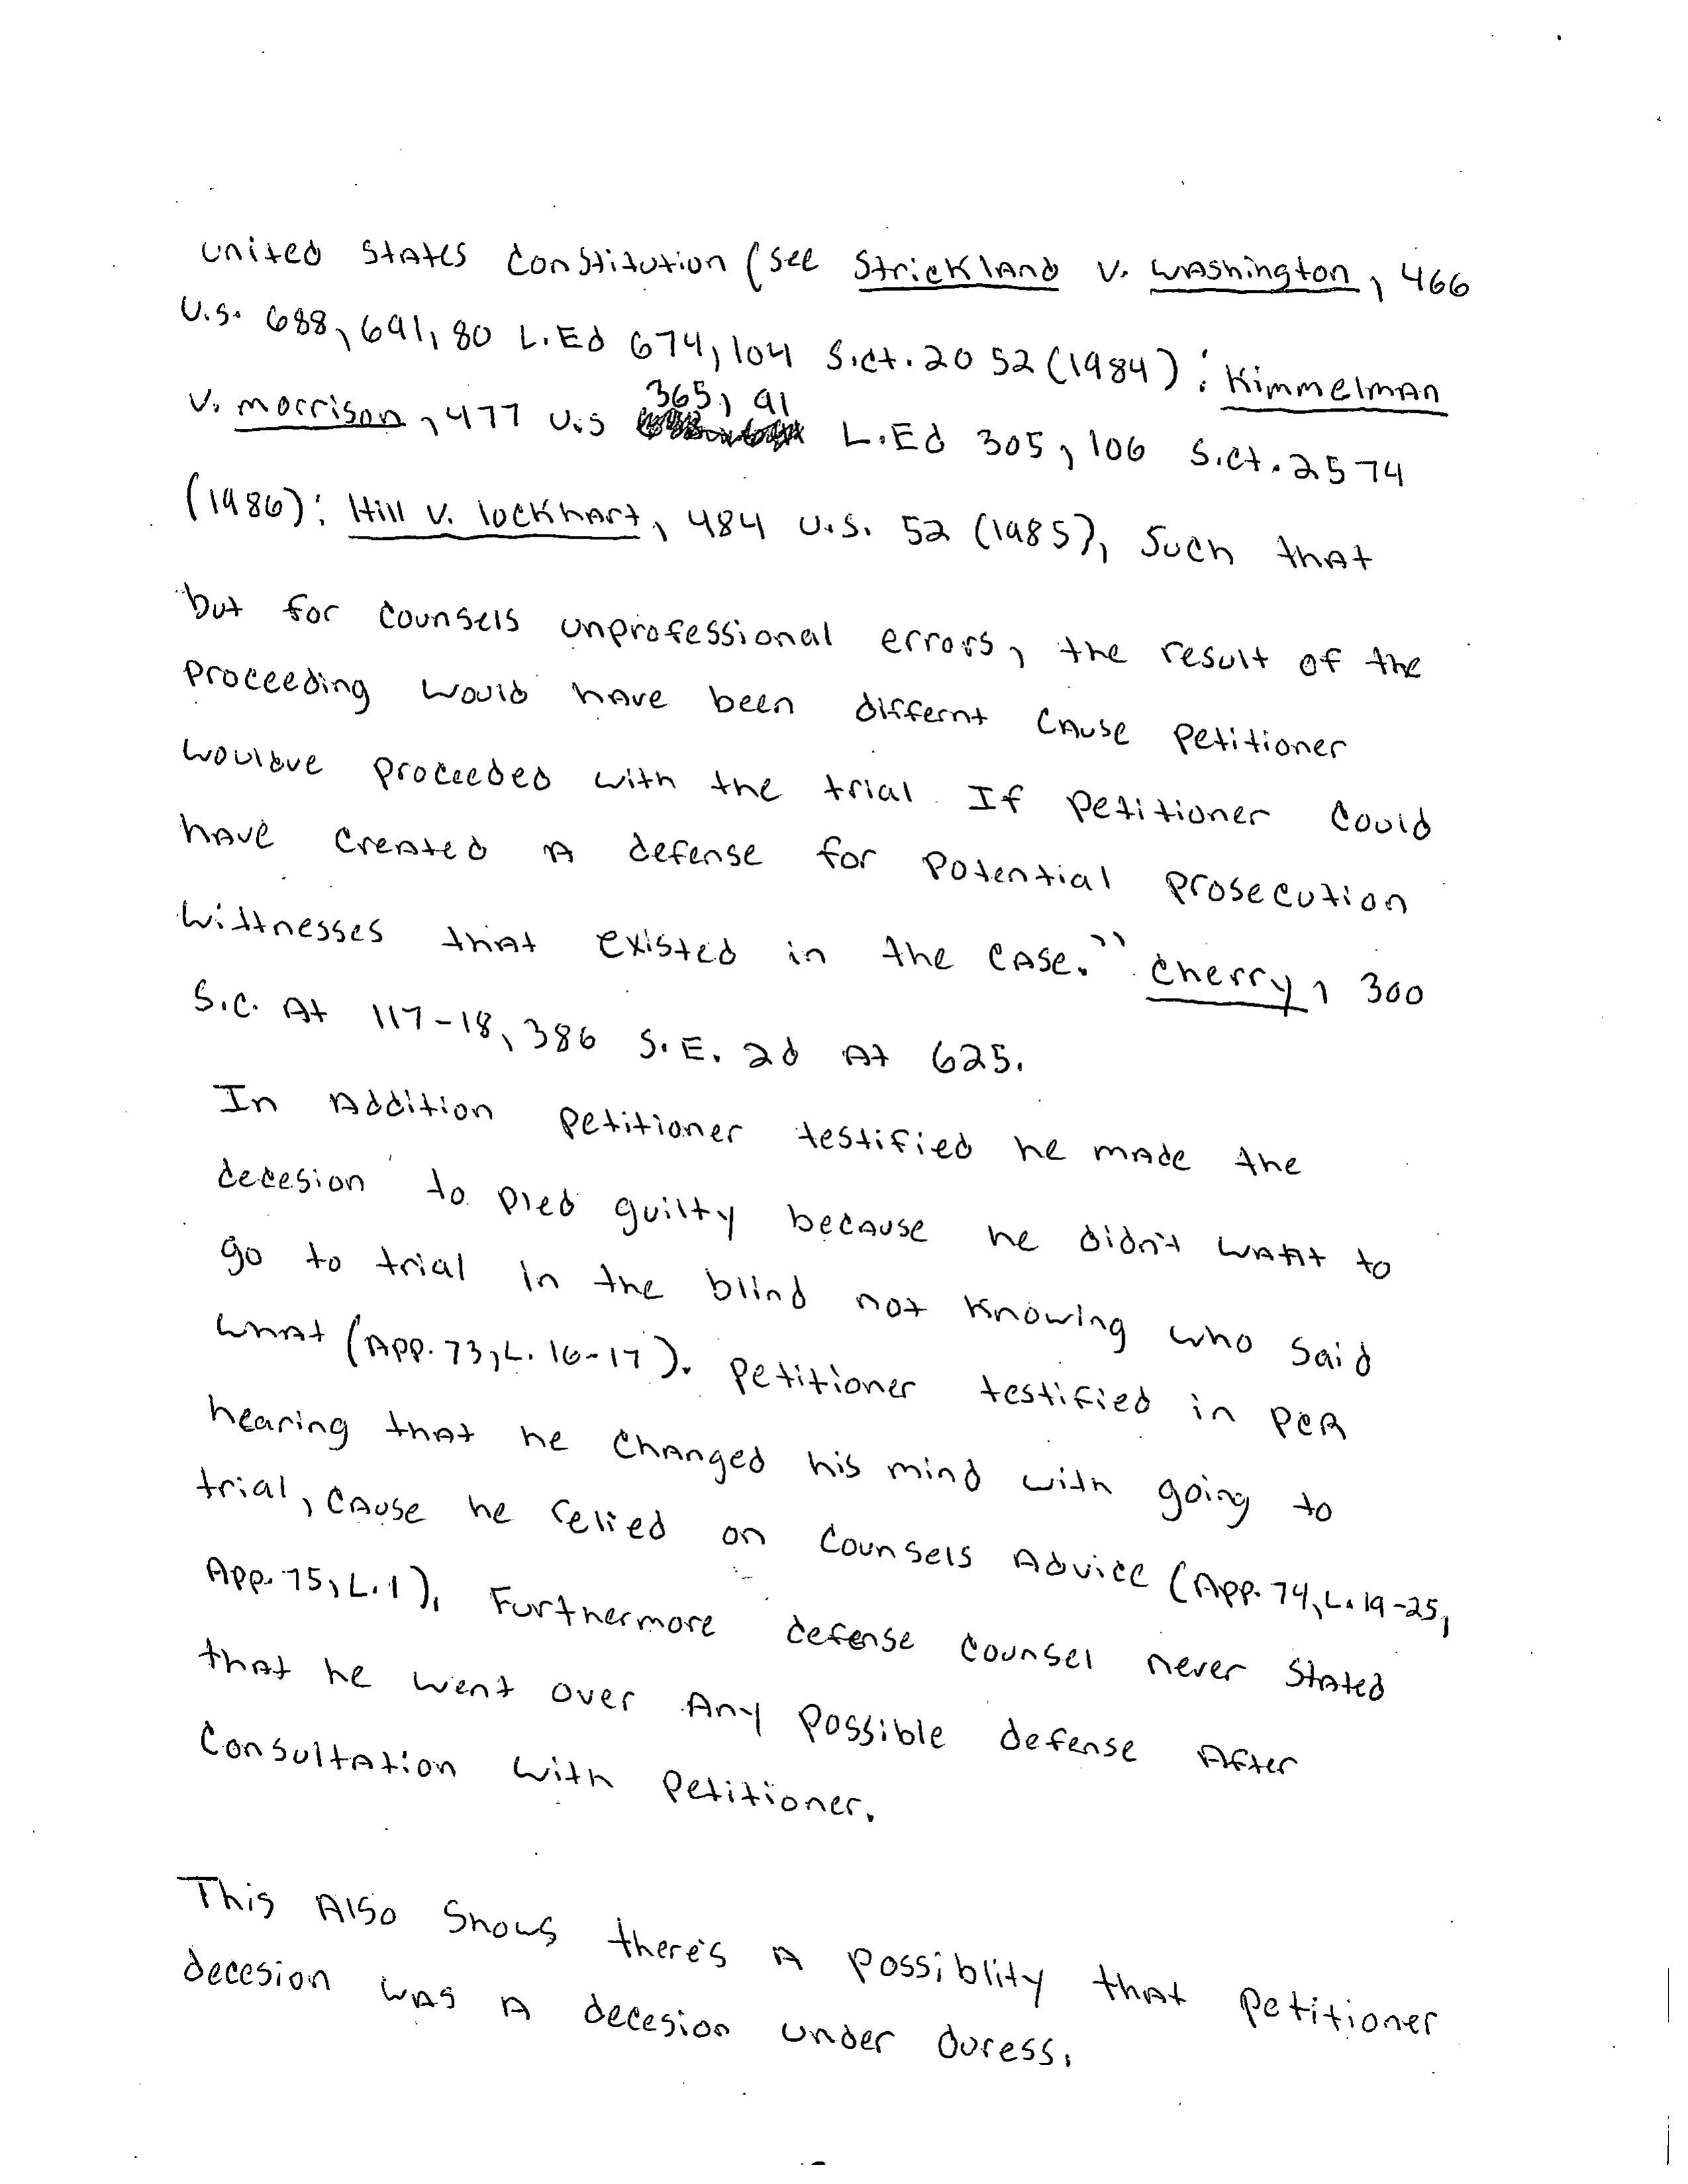 United States Constitution (see Strickland v. Washington, 466
U.S. 688, 691, 80 L.Ed 674, 104 S.ct. 20 52 (1984): Kimmelman
v. morrison, 477 U.S 365, 91 L.Ed 305, 106 S.ct. 2574
(1986): Hill v. lockhart, 484 U.S. 52 (1985), Such that
but for counsels unprofessional errors, the result of the
proceeding would have been differnt cause petitioner
wouldve proceeded with the trial If petitioner could
have created a defense for potential prosecution
wittnesses that existed in the case." Cherry, 300
S.C. At 117-18, 386 S.E. 2d At 625.
In Addition petitioner testified he made the
decesion to pled guilty because he didn't want to
go to trial in the blind not knowing who said
what (App. 73, L. 16-17). Petitioner testified in PCR
hearing that he changed his mind with going to
trial, cause he relied on counsels Advice (App. 74, L. 19-25,
App. 75, L. 1). Furthermore defense counsel never stated
that he went over Any possible defense After
Consultation with petitioner.
This Also shows there's A possiblity that petitioner
decesion was A decesion under duress.